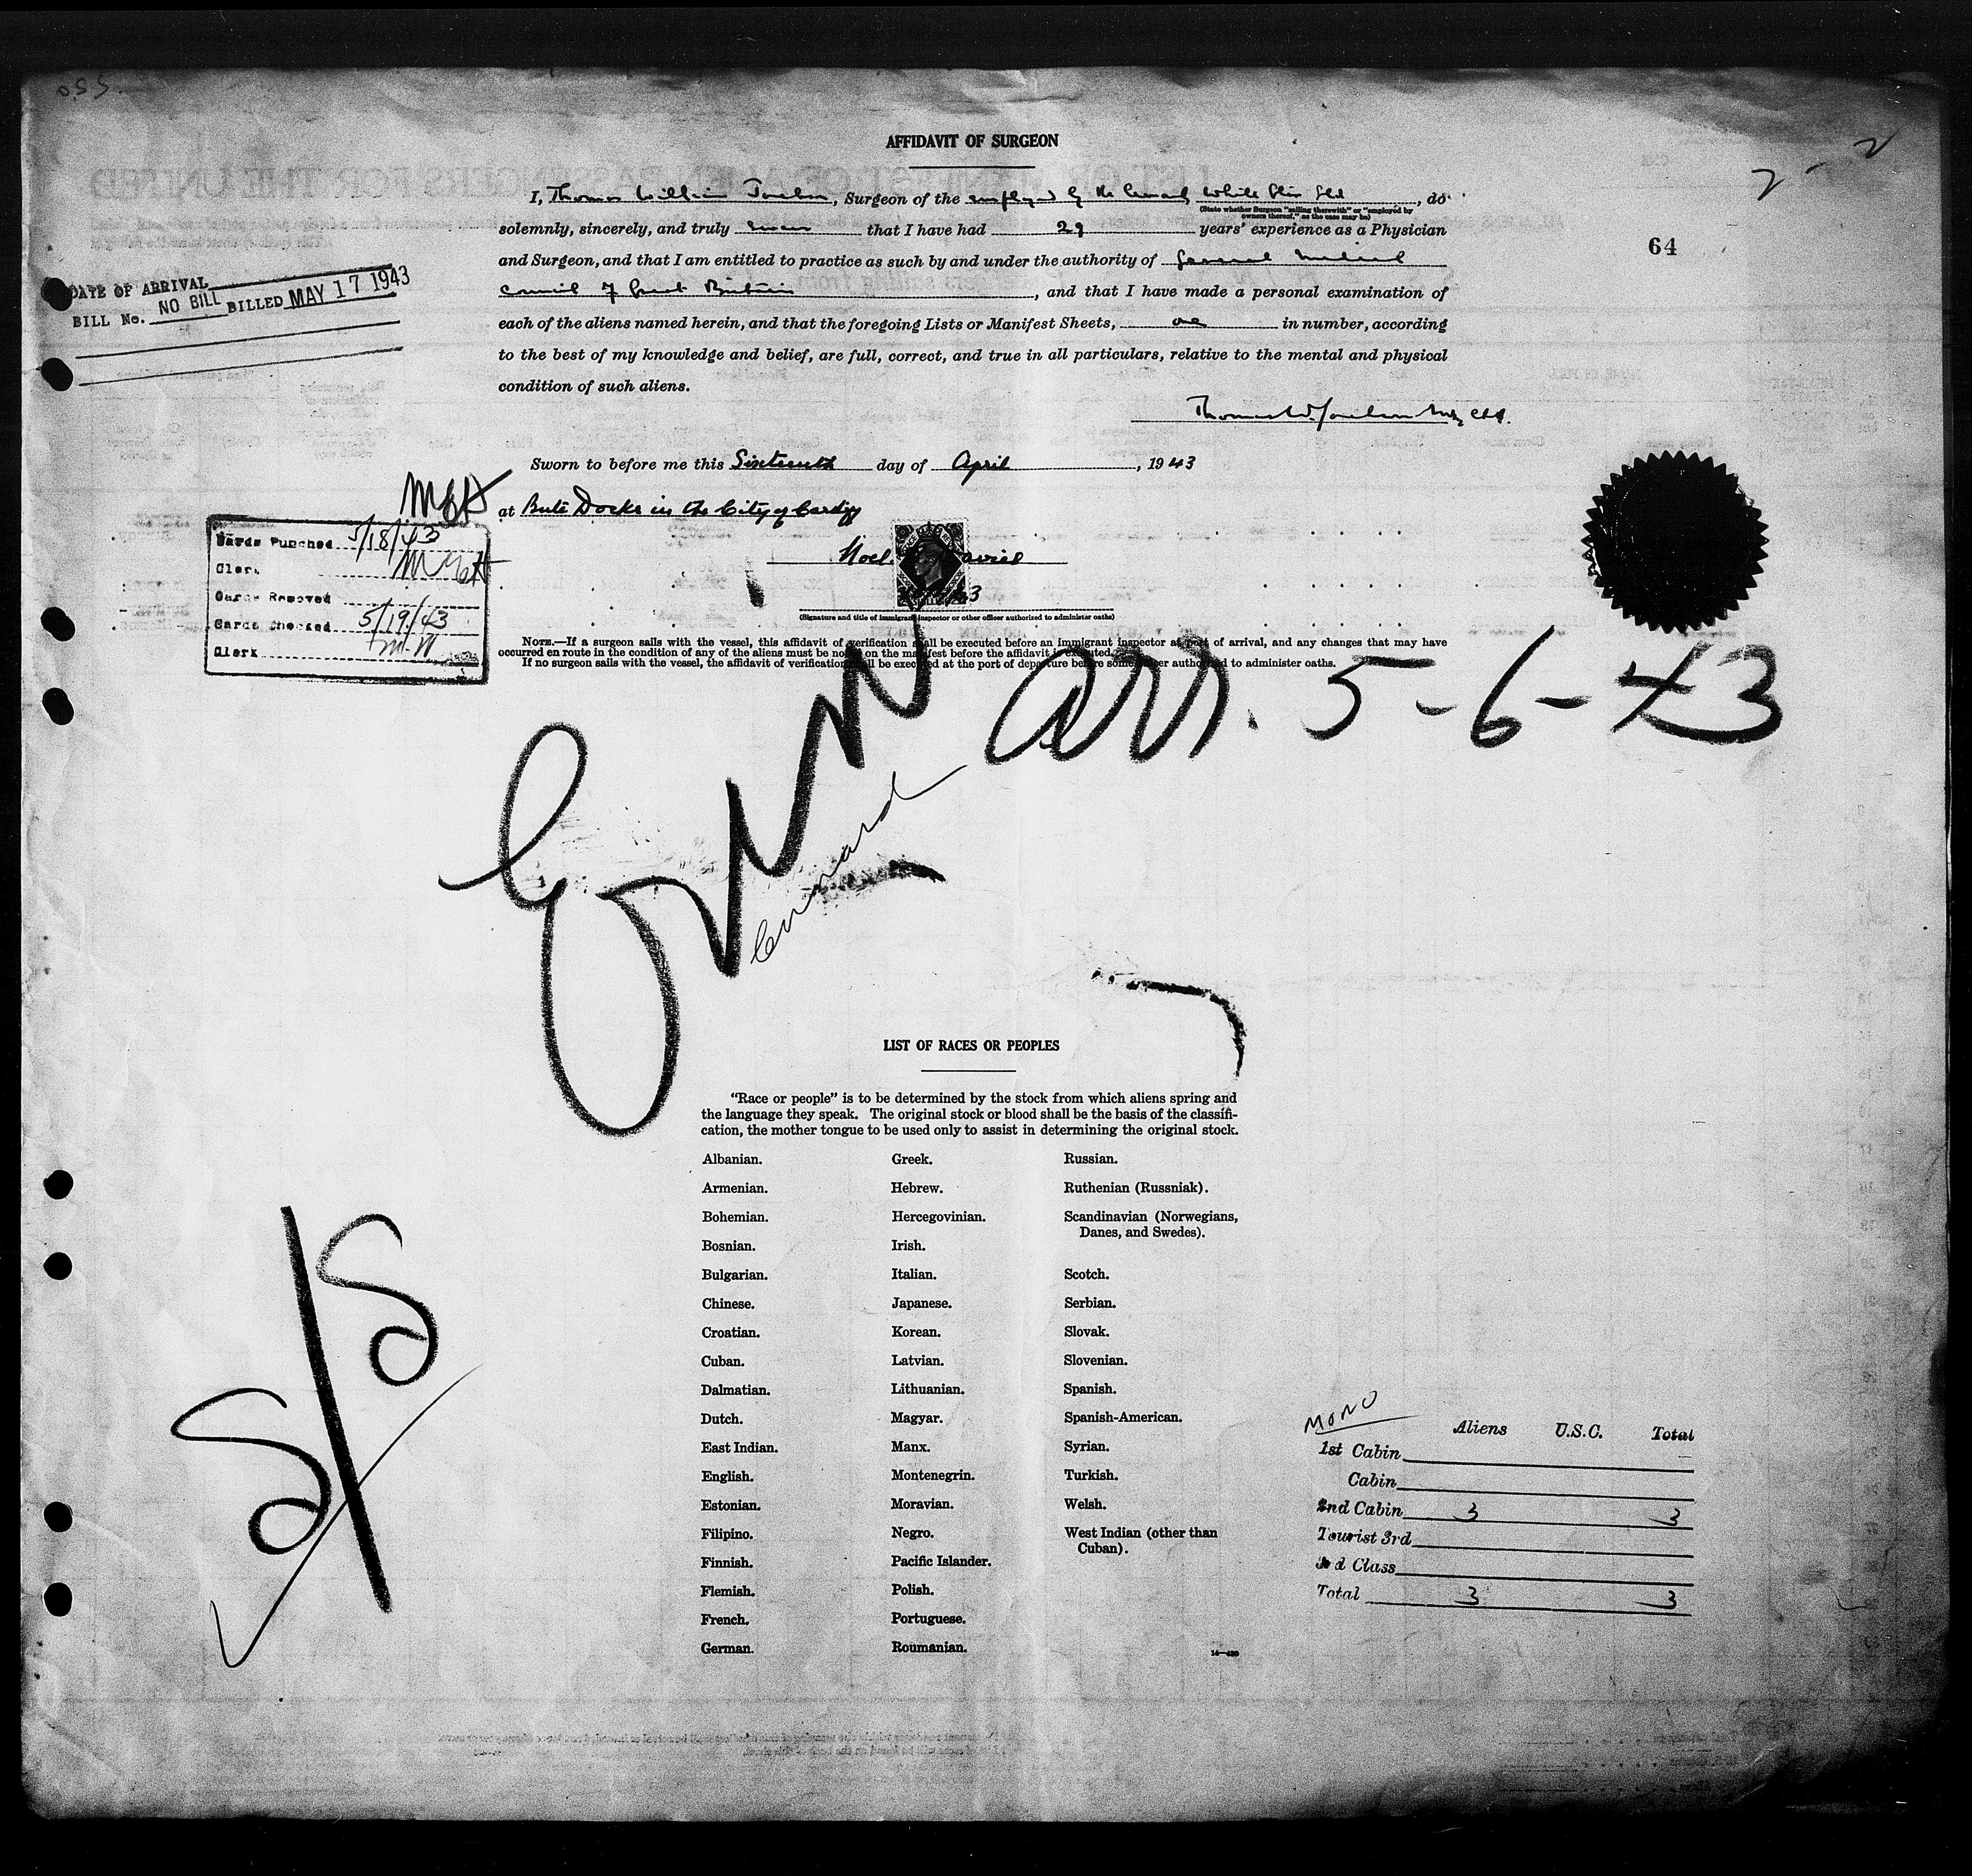 AFFIDAVIT OF SURGEON
I, Thomas William, Surgeon of the employed by the Cunard White Star Ltd, do
(State whether Surgeon "sailing therewith" or "employed by owners thereof," as the case may be)
solemnly, sincerely, and truly swear that I have had 29 years' experience as a Physician
and Surgeon, and that I am entitled to practice as such by and under the authority of General Medical
Council of Great Britain, and that I have made a personal examination of
each of the aliens named herein, and that the foregoing Lists or Manifest Sheets, one in number, according
to the best of my knowledge and belief, are full, correct, and true in all particulars, relative to the mental and physical
condition of such aliens.
Thomas W.
64
DATE OF ARRIVAL
BILL No. NO BILL BILLED MAY 17 1943
Sworn to before me this Sixteenth day of April, 1943
at Bute Docks in the City of Cardiff
Noel
(Signature and title of immigrant inspector or other officer authorized to administer oaths)
Cards Punched 5/18/43
Clerk
Cards Removed
Cards Checked 5/19/43
Clerk
NOTE.—If a surgeon sails with the vessel, this affidavit of verification shall be executed before an immigrant inspector at port of arrival, and any changes that may have
occurred en route in the condition of any of the aliens must be noted on the manifest before the affidavit is executed.
If no surgeon sails with the vessel, the affidavit of verification shall be executed at the port of departure before some officer authorized to administer oaths.
arr. 5-6-43
Cunard
LIST OF RACES OR PEOPLES
"Race or people" is to be determined by the stock from which aliens spring and
the language they speak. The original stock or blood shall be the basis of the classifi-
cation, the mother tongue to be used only to assist in determining the original stock.
Albanian.
Armenian.
Bohemian.
Bosnian.
Bulgarian.
Chinese.
Croatian.
Cuban.
Dalmatian.
Dutch.
East Indian.
English.
Estonian.
Filipino.
Finnish.
Flemish.
French.
German.
Greek.
Hebrew.
Hercegovinian.
Irish.
Italian.
Japanese.
Korean.
Latvian.
Lithuanian.
Magyar.
Manx.
Montenegrin.
Moravian.
Negro.
Pacific Islander.
Polish.
Portuguese.
Roumanian.
Russian.
Ruthenian (Russniak).
Scandinavian (Norwegians,
Danes, and Swedes).
Scotch.
Serbian.
Slovak.
Slovenian.
Spanish.
Spanish-American.
Syrian.
Turkish.
Welsh.
West Indian (other than
Cuban).
S/S
MONO
Aliens U.S.C. Total
1st Cabin
Cabin
2nd Cabin 3 3
Tourist 3rd
3rd Class
Total 3 3